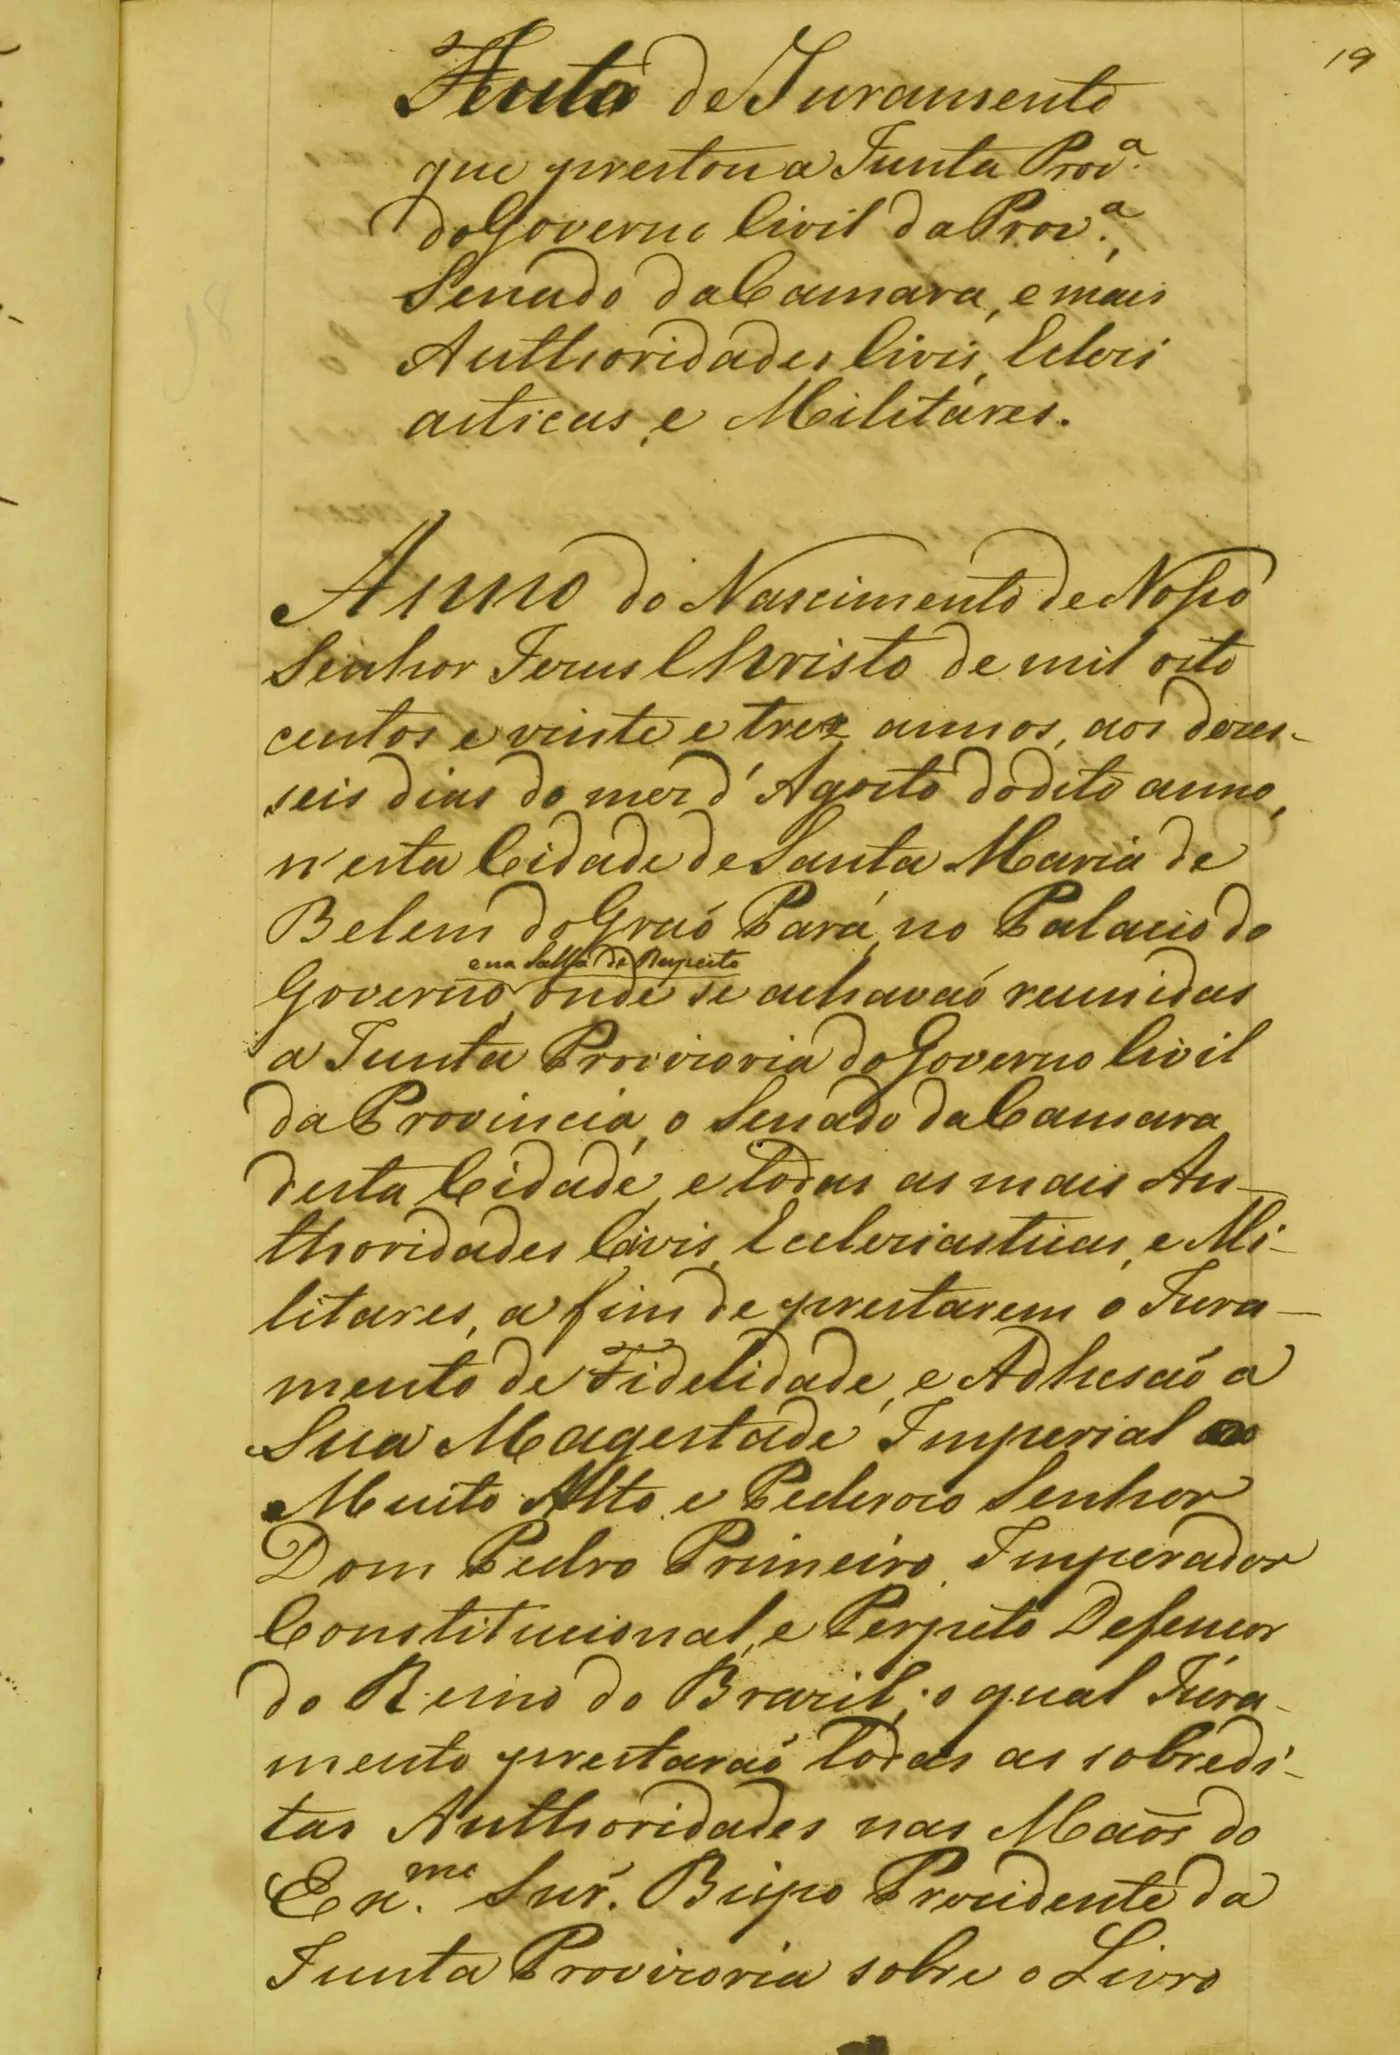 19
Auto de Juramento
que prestou a Junta Prov.ª
do Governo Civil da Prov.ª,
Senado da Camara, e mais
Authoridades Civis, Ecclesi
asticas, e Militáres.
Anno do Nascimento de Nosso
Senhor Jesus Christo de mil oito
centos e vinte e trez annos, aos dezes-
seis dias do mez d'Agosto do dito anno,
n'esta Cidade de Santa Maria de
Belem do Graõ Pará, no Palacio do
e na Salla do Respeito
Governo, onde se achavaõ reunidas
a Junta Provizoria do Governo Civil
da Provincia, o Senado da Camara
desta Cidade, e todas as mais Au-
thoridades Civis, Ecclesiasticas, e Mi-
litares, a fim de prestarem o Jura-
mento de Fidelidade, e Adhesaõ a
Sua Magestade Imperial ao
Muito Alto e Poderozo Senhor
Dom Pedro Primeiro, Imperador
Constitucional, e Perpeto Defensor
do Reino do Brazil; o qual Jura-
mento prestaraõ todas as sobredi-
tas Authoridades nas Maõs do
Ex.mo Snr. Bispo Prezidente da
Junta Provizoria sobre o Livro